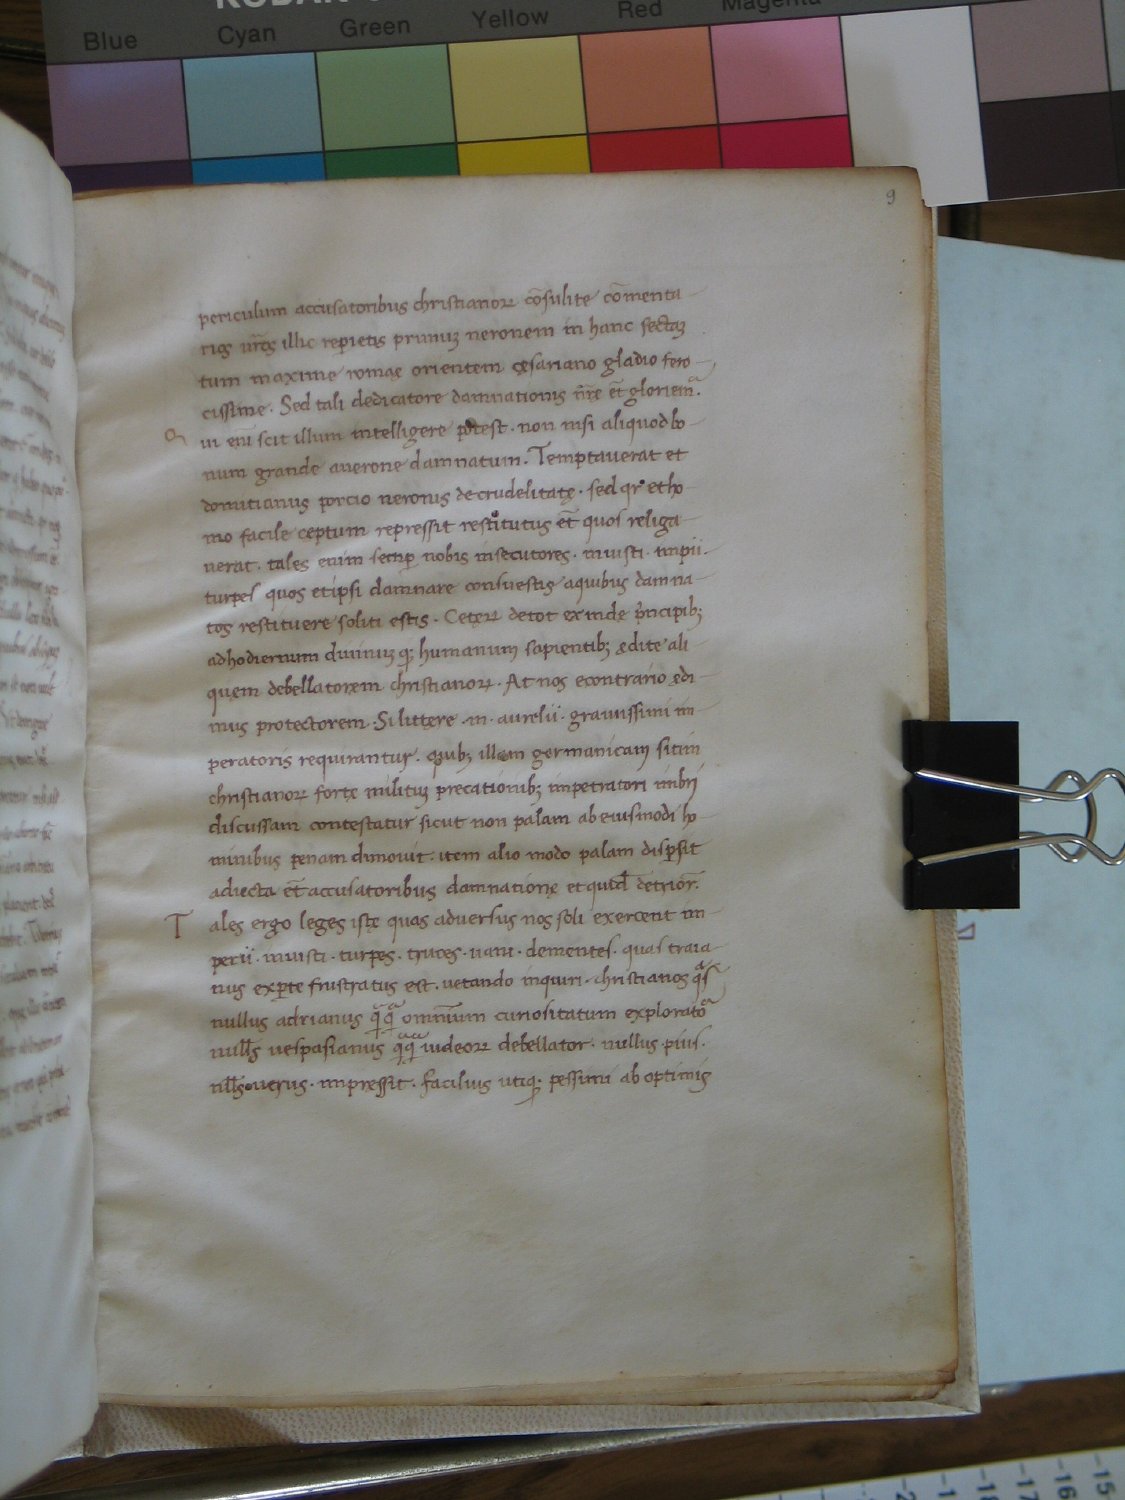 KODAK
Blue Cyan Green Yellow Red Magenta
9
periculum accusatoribus christianoꝝ cōsulite cōmenta
rios ūrōs illic reperietis primuꝫ neronem in hanc sectaꝫ
tum maxime romę orientem cęsariano gladio fero
cissime. Sed tali dedicatore damnationis nr̄e et̄ gloriem̃.
Q ui eni scit illum intelligere potest. non nisi aliquod bo
num grande a nerone damnatum. Temptauerat et
domitianus porcio neronis de crudelitatę. sed qr̄ et ho
mo facile ceptum repressit restitutus et̄ quos religa
uerat. tales enim semp̱ nobis insecutores. iniusti. impii.
turpes quos et ipsi damnare consuestis a quibus damna
tos restituere soliti estis. Ceteroꝝ de tot exinde p̄ncipibꝫ
ad hodiernum diuinuꝫ qꝫ humanum sapientibꝫ ędite ali
quem debellatorem christianoꝝ. At nos econtrario ędi
mus protectorem. Si littere .m. aurelii. grauissimi im
peratoris requirantur. quibꝫ illam germanicam sitim
christianoꝝ forte milituꝫ precationibꝫ impetrato imbri
discussam contestatur sicut non palam ab eiusmodi ho
minibus penam dimouit. item alio modo palam disp̱sit
adiecta et̄ accusatoribus damnationę et quid̄ detrior̄.
T ales ergo leges istę quas aduersus nos soli exercent im
perii. iniusti. turpes. truces. uani. dementes. quas traia
nus exp̱te frustratus est. uetando inquiri. christianos q̃s
nullus adrianus q̃q̃ omnium curiositatum explorato
null̄s uespasianus q̃q̃ iudeoꝝ debellator. nullus pius.
nll̄s uerus. impressit. facilius utiqꝫ. pessimi ab optimis